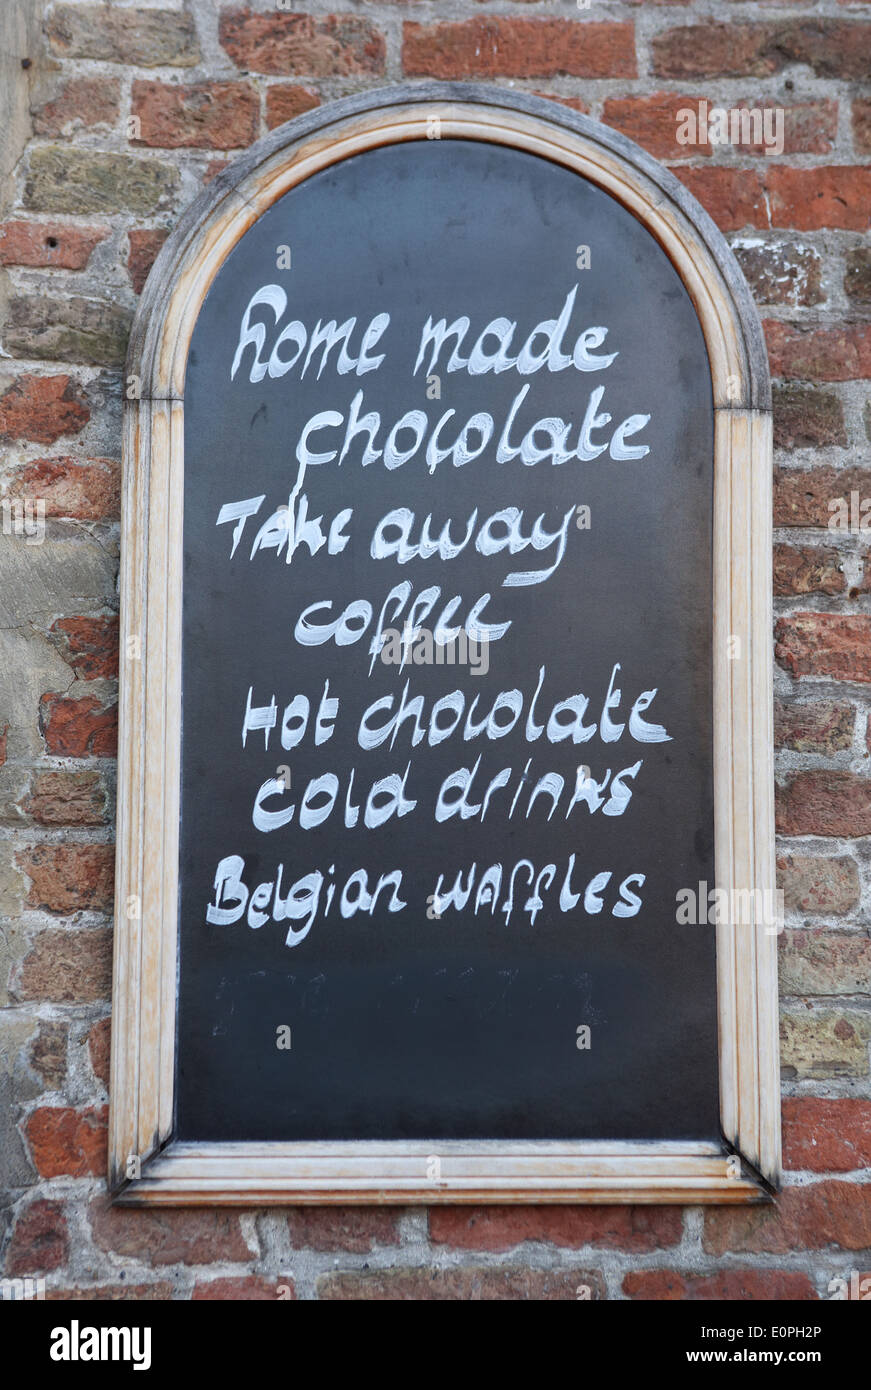 home made
chocolate
Take away
coffee
Hot chocolate
cold drinks
Belgian waffles
a alamy
alamy
Image ID: E0PH2P
www.alamy.com